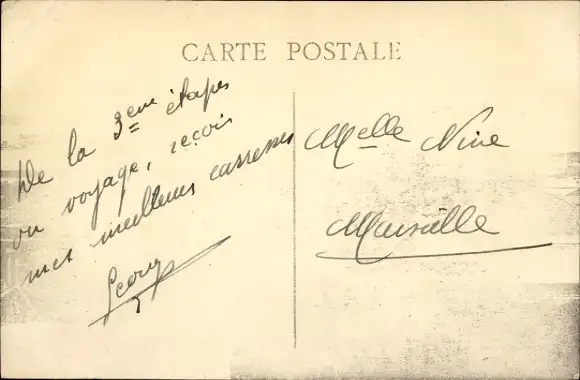 CARTE POSTALE
De la 3eme étapes
du voyage, reçois
mes meilleures caresses
Georg
Melle Nine
Marseille